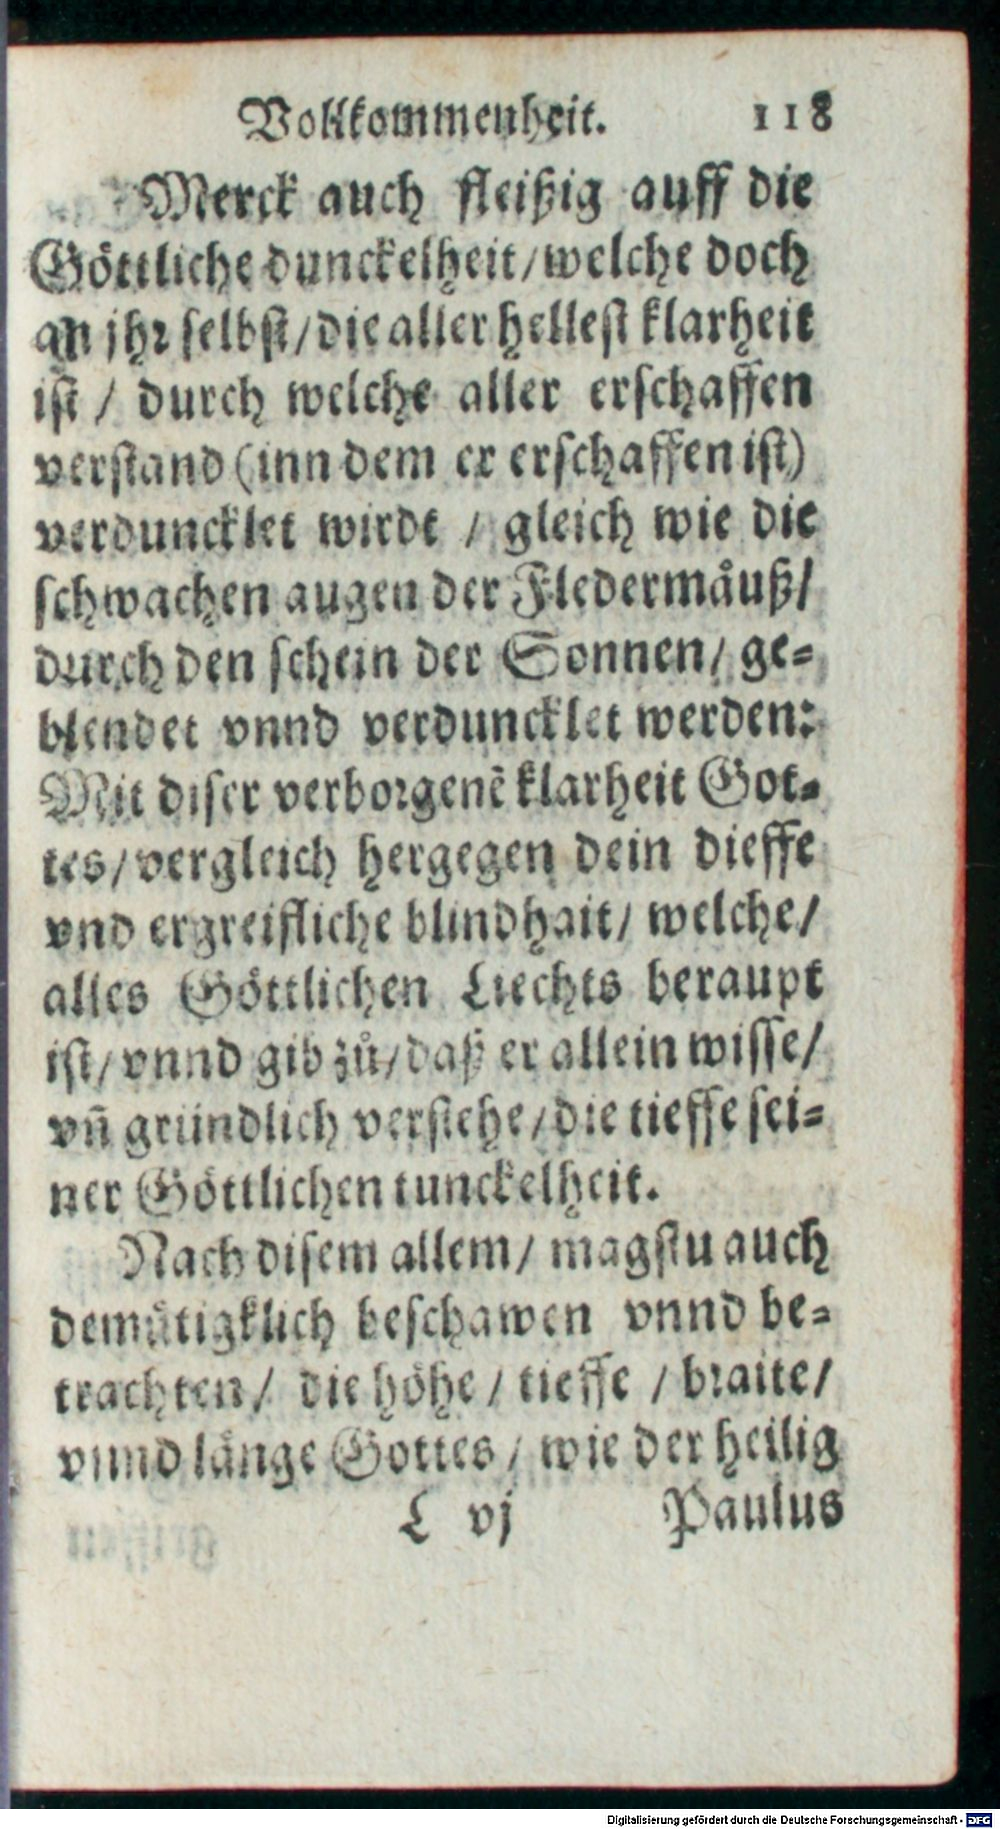 Vollkommenheit. 118
Merck auch fleißig auff die
Göttliche dunckelheit/welche doch
an jhr selbst/die aller hellest klarheit
ist / durch welche aller erschaffen
verstand (inn dem er erschaffen ist)
verduncklet wirdt / gleich wie die
schwachen augen der Fledermåuß/
durch den schein der Sonnen/ ge-
blendet vnnd verduncklet werden:
Mit diser verborgenẽ klarheit Got-
tes/vergleich hergegen dein dieffe
vnd ergreifliche blindhait/ welche/
alles Göttlichen Liechts beraupt
ist/vnnd gib zů/daß er allein wisse/
vñ gründlich verstehe/die tieffe sei-
ner Göttlichen tunckelheit.
Nach disem allem/ magstu auch
demütigklich beschawen vnnd be-
trachten/ die höhe/ tieffe / braite/
vnnd länge Gottes/ wie der heilig
L vj Paulus
Digitalisierung gefördert durch die Deutsche Forschungsgemeinschaft - DFG